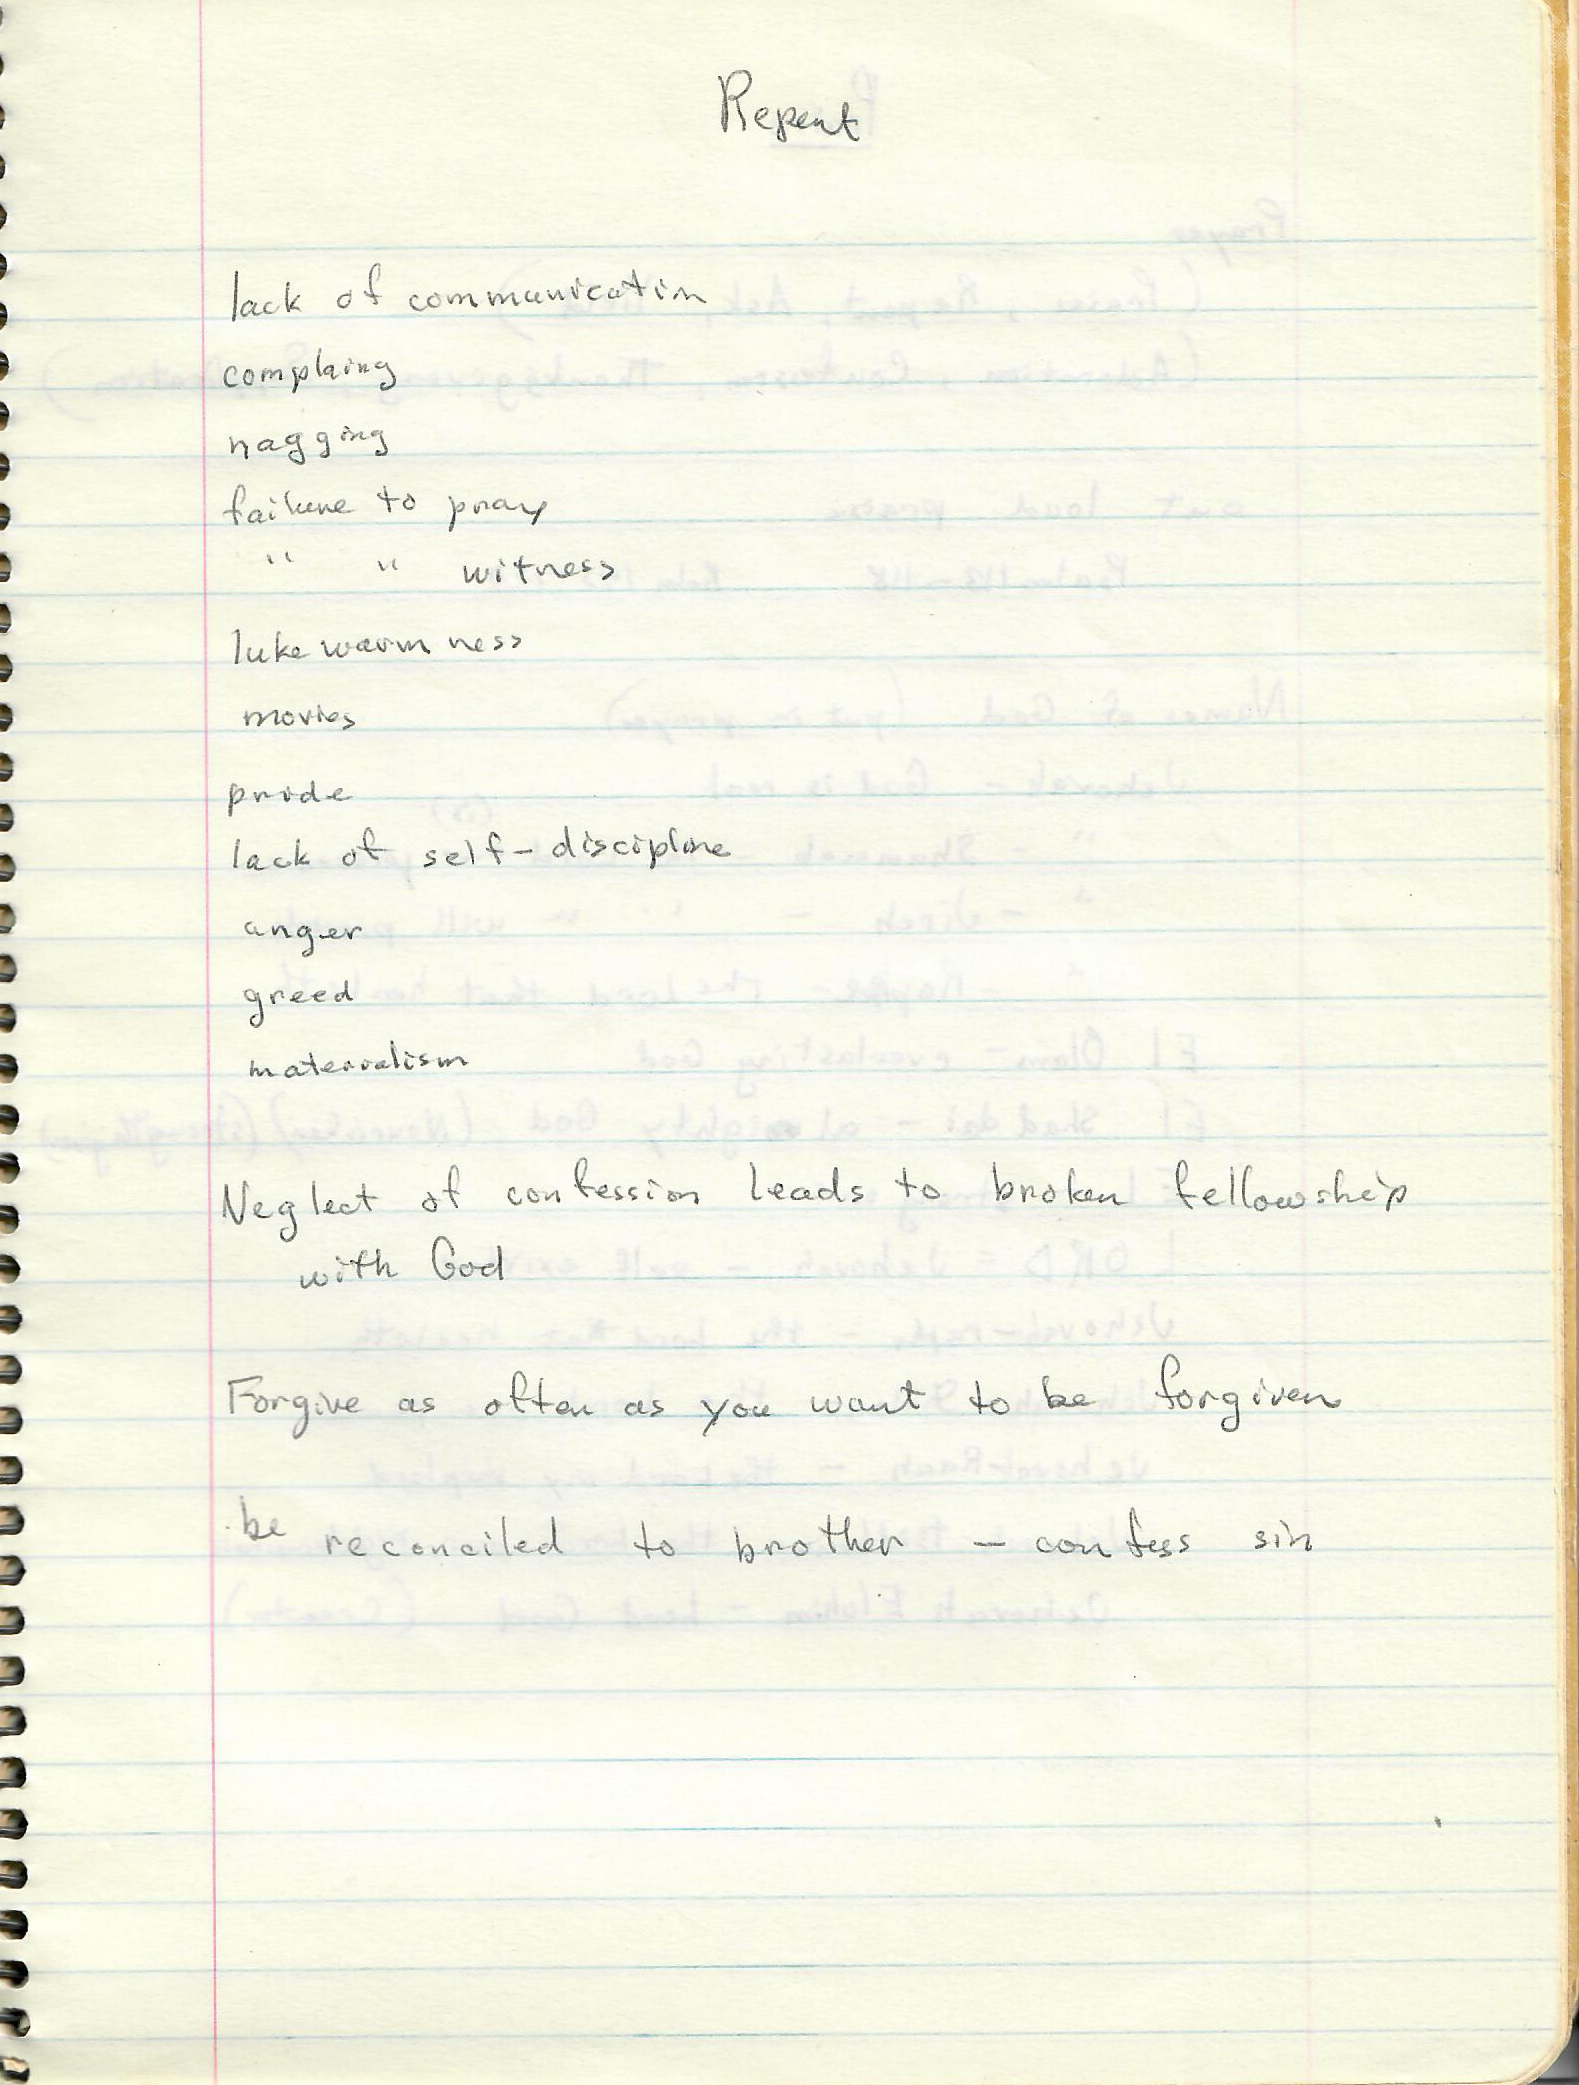 Repent
lack of communication
complaing
nagging
failure to pray
" " witness
lukewarmness
movies
pride
lack of self-discipline
anger
greed
materialism
Neglect of confession leads to broken fellowship
with God
Forgive as often as you want to be forgiven
be reconciled to brother - confess sin